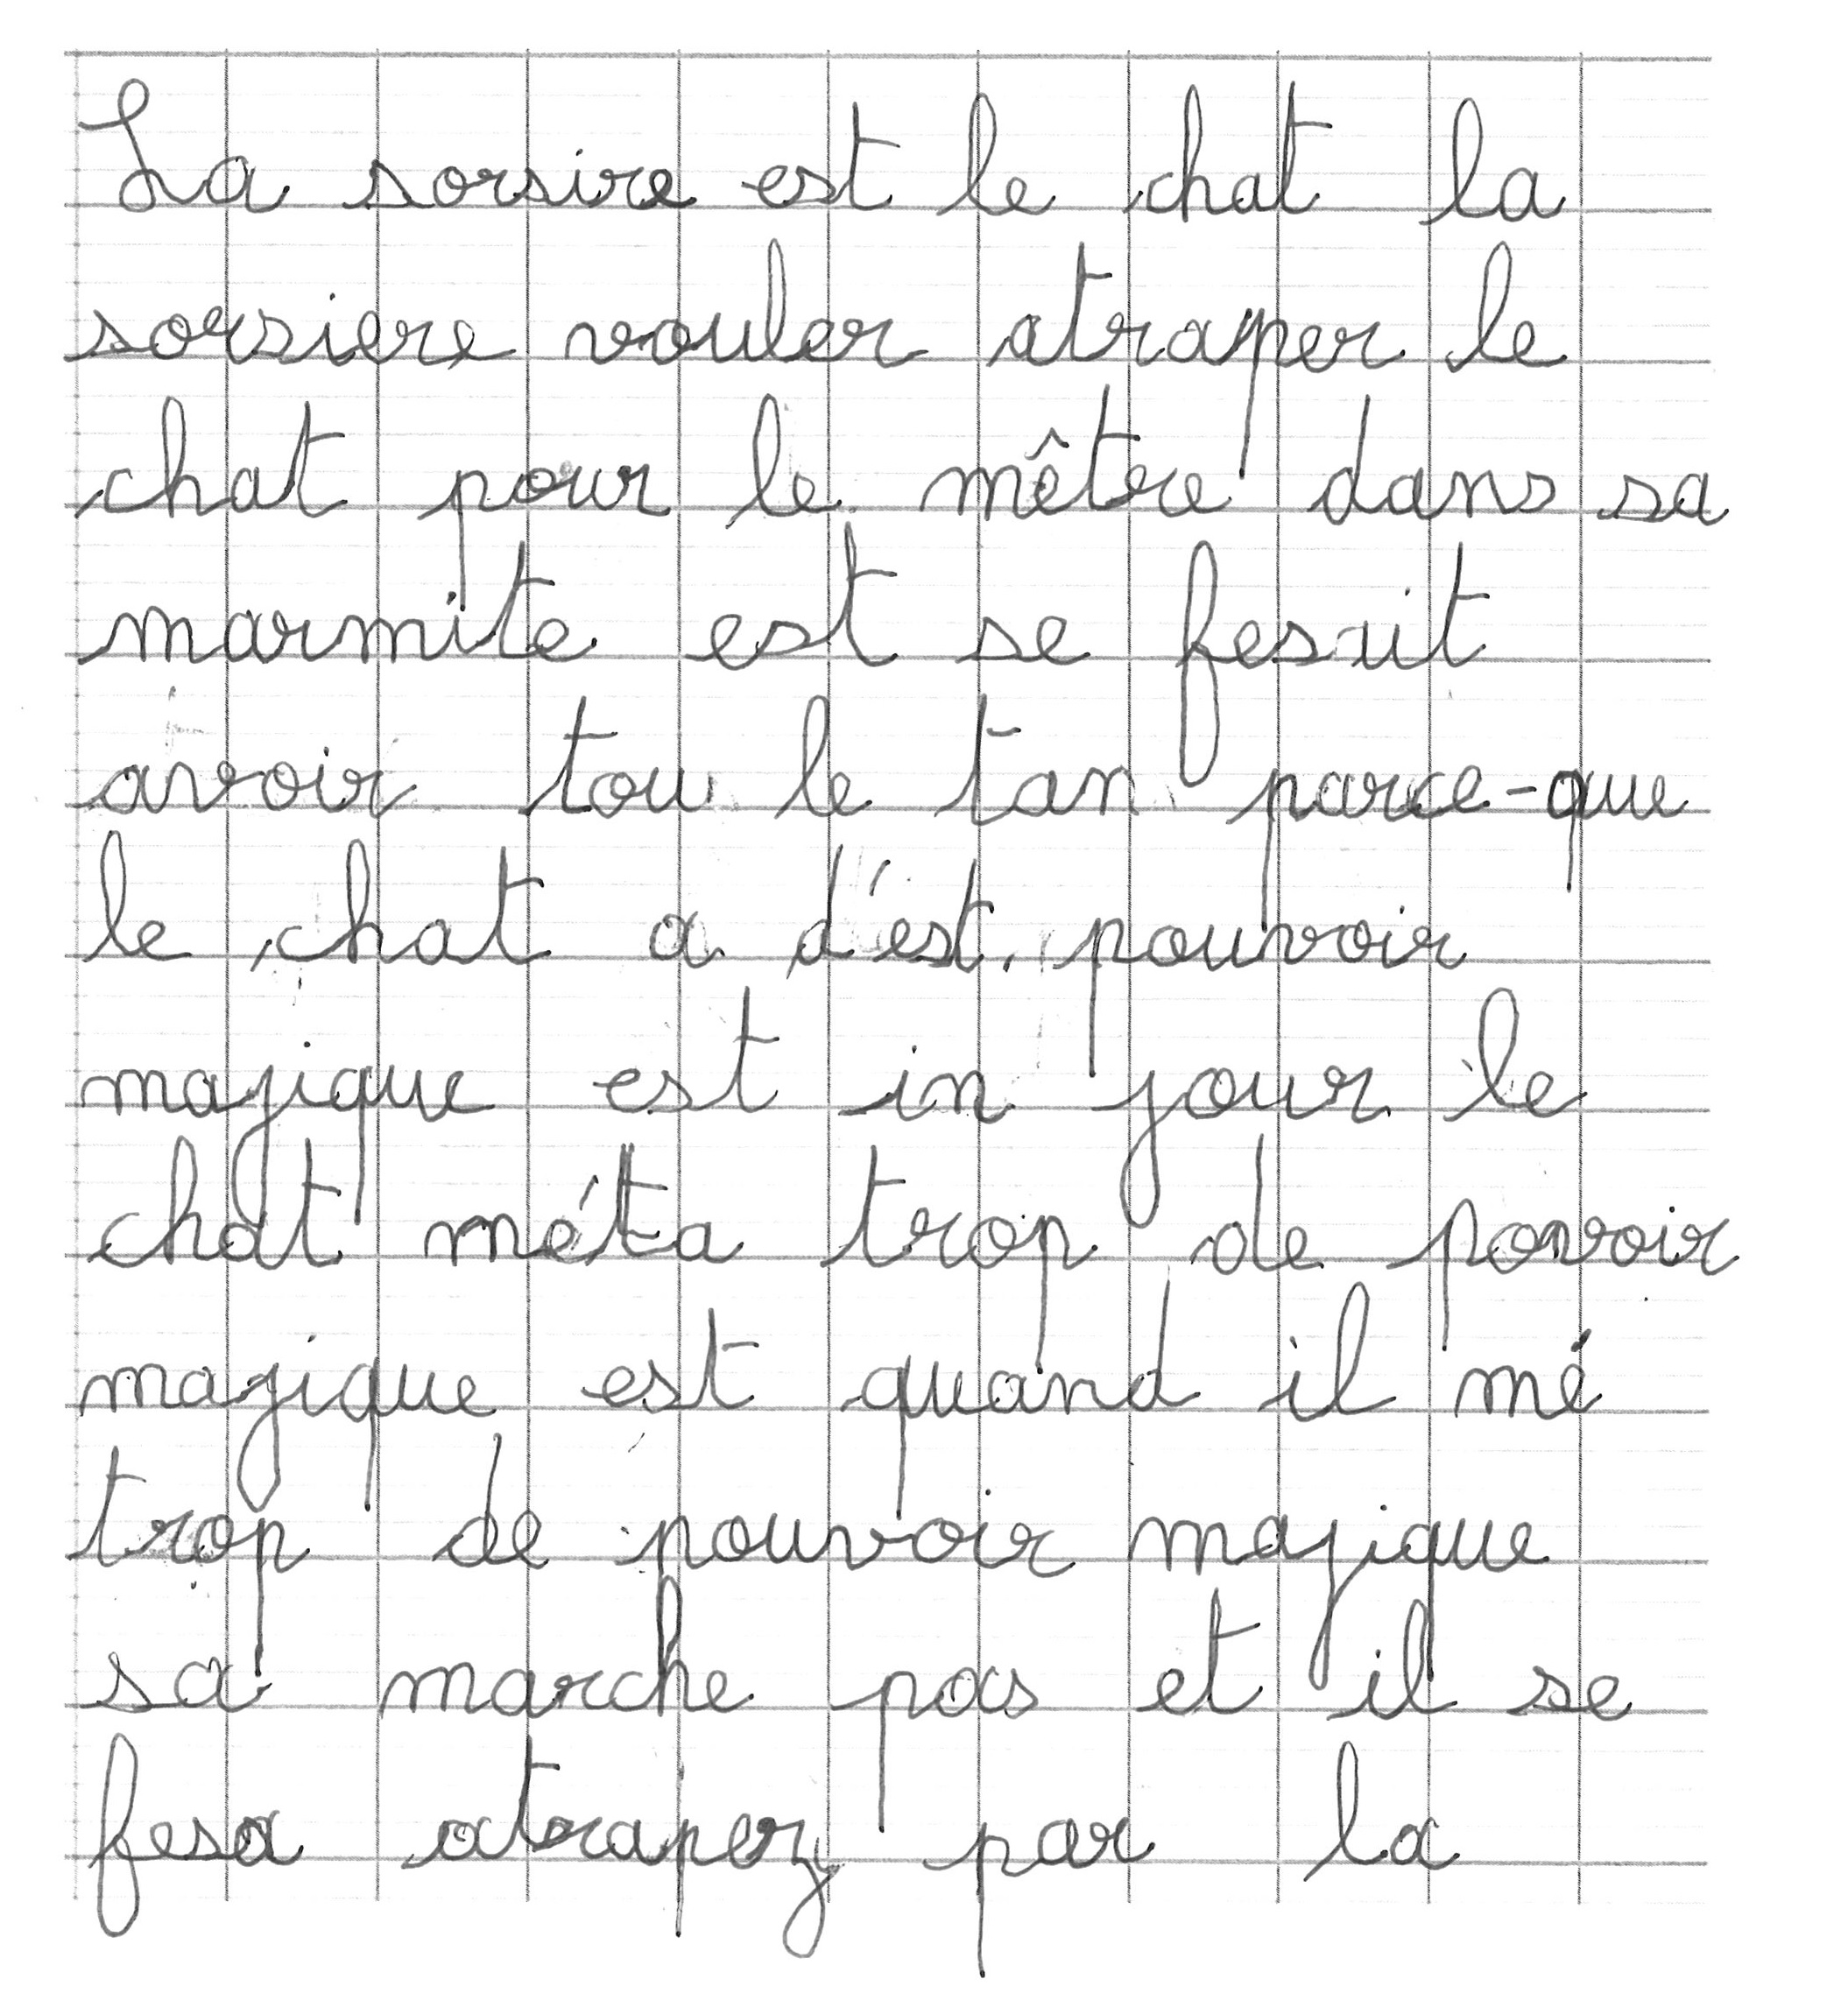 La sorsire est le chat la
sorsiere vouler atraper le
chat pour le mêtre dans sa
marmite est se fesait
avoir tou le tan parce-que
le chat a d'est pouvoir
majique est in jour le
chat méta trop de povoir
majique est quand il mé
trop de pouvoir majique
sa marche pas et il se
fesa atraper par la